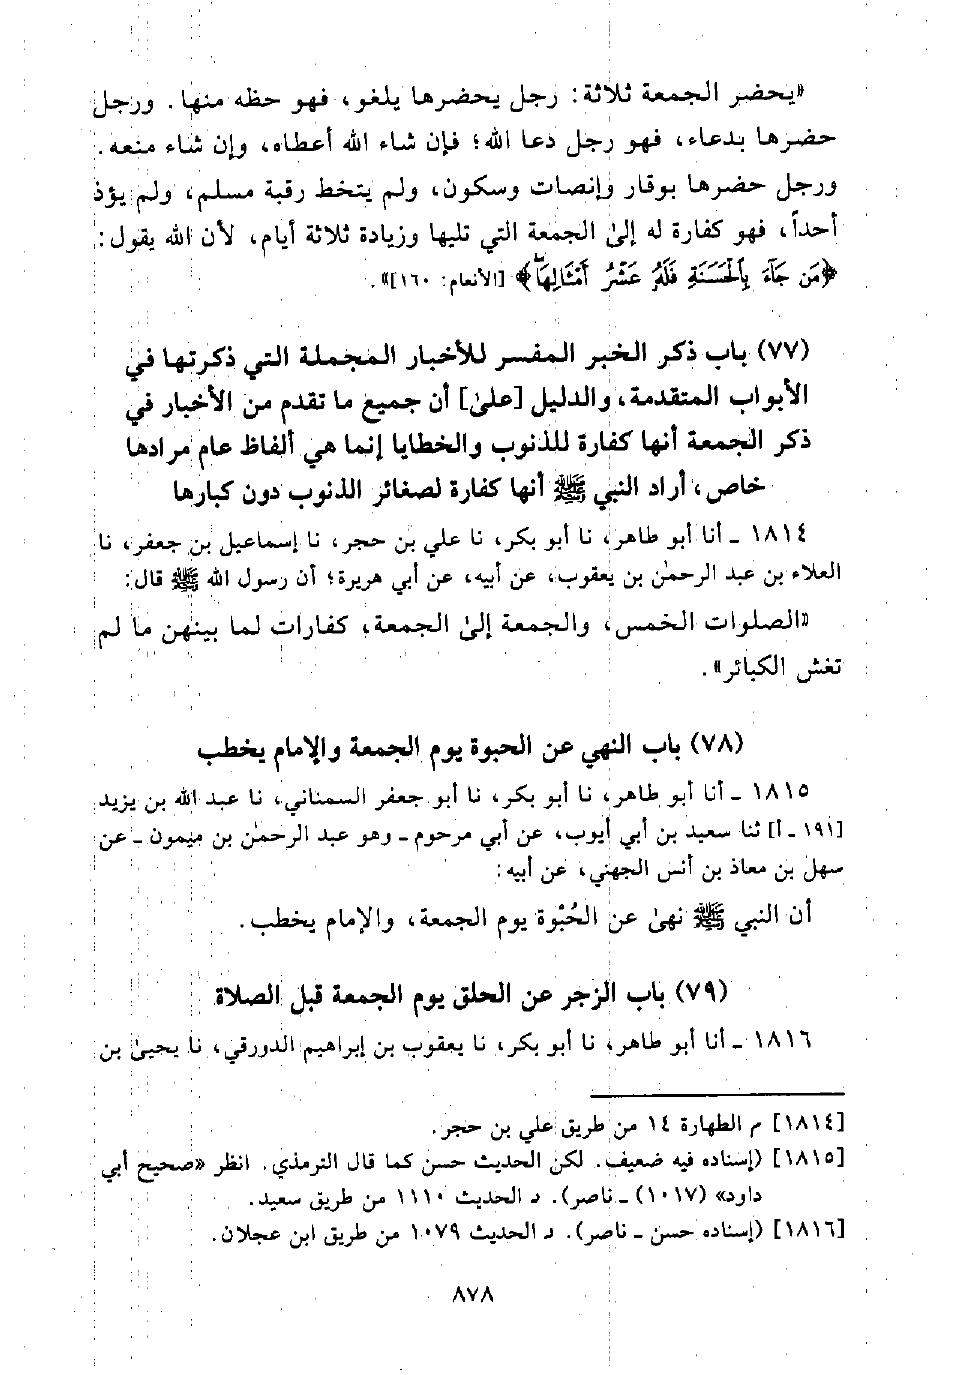 «يحضر الجمعة ثلاثة: رجل يحضرها يلغو، فهو حظه منها. ورجل
حضرها بدعاء، فهو رجل دعا الله؛ فإن شاء الله أعطاه، وإن شاء منعه.
ورجل حضرها بوقار وإنصات وسكون، ولم يتخط رقبة مسلم، ولم يؤذ
أحداً، فهو كفارة له إلىٰ الجمعة التي تليها وزيادة ثلاثة أيام، لأن الله يقول:
﴿مَن جَآءَ بِٱلْحَسَنَةِ فَلَهُۥ عَشْرُ أَمْثَالِهَاۖ﴾ [الأنعام: ١٦٠]».
(٧٧) باب ذكر الخبر المفسر للأخبار المجملة التي ذكرتها في
الأبواب المتقدمة، والدليل [علىٰ] أن جميع ما تقدم من الأخبار في
ذكر الجمعة أنها كفارة للذنوب والخطايا إنما هي ألفاظ عام مرادها
خاص، أراد النبي ﷺ أنها كفارة لصغائر الذنوب دون كبارها
١٨١٤ ـ أنا أبو طاهر، نا أبو بكر، نا علي بن حجر، نا إسماعيل بن جعفر، نا
العلاء بن عبد الرحمٰن بن يعقوب، عن أبيه، عن أبي هريرة؛ أن رسول الله ﷺ قال:
«الصلوات الخمس، والجمعة إلىٰ الجمعة، كفارات لما بينهن ما لم
تغش الكبائر».
(٧٨) باب النهي عن الحبوة يوم الجمعة والإمام يخطب
١٨١٥ ـ أنا أبو طاهر، نا أبو بكر، نا أبو جعفر السمناني، نا عبد الله بن يزيد
[١٩١ ـ أ] ثنا سعيد بن أبي أيوب، عن أبي مرحوم ـ وهو عبد الرحمٰن بن ميمون ـ عن
سهل بن معاذ بن أنس الجهني، عن أبيه:
أن النبي ﷺ نهىٰ عن الحُبْوة يوم الجمعة، والإمام يخطب.
(٧٩) باب الزجر عن الحلق يوم الجمعة قبل الصلاة
١٨١٦ ـ أنا أبو طاهر، نا أبو بكر، نا يعقوب بن إبراهيم الدورقي، نا يحيىٰ بن
[١٨١٤] م الطهارة ١٤ من طريق علي بن حجر.
[١٨١٥] (إسناده فيه ضعيف. لكن الحديث حسن كما قال الترمذي. انظر «صحيح أبي
داود» (١٠١٧) ـ ناصر). د الحديث ١١١٠ من طريق سعيد.
[١٨١٦] (إسناده حسن ـ ناصر). د الحديث ١٠٧٩ من طريق ابن عجلان.
٨٧٨